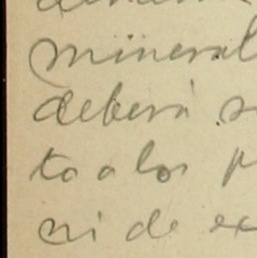 mineral
deberá s
to a los p
ni de ex